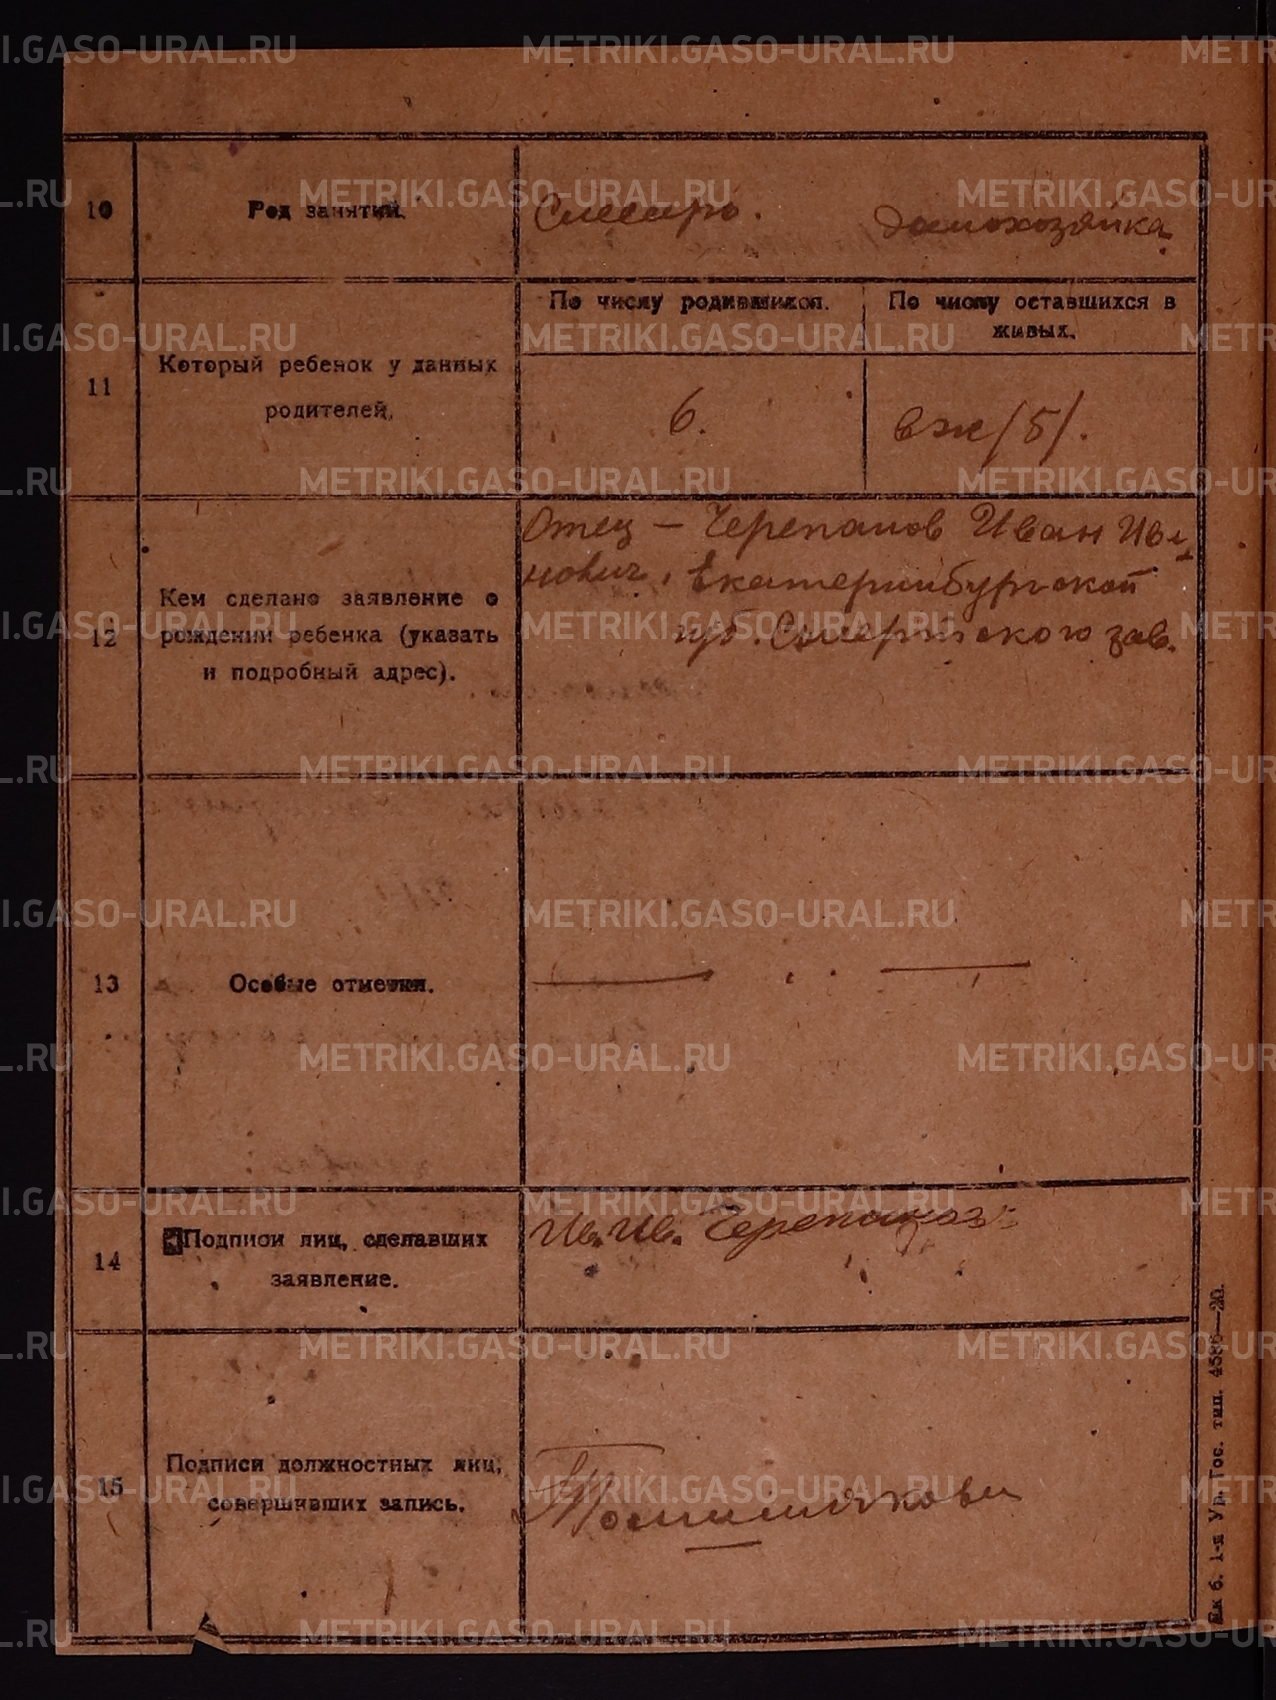 METRIKI.GASO-URAL.RU
10
Род занятий.
Слесарь.
домохозяйка
11
Который ребенок у данных
родителей.
По числу родившихся.
По числу оставшихся в
живых.
6.
вж/5/.
12
Кем сделано заявление о
рождении ребенка (указать
и подробный адрес).
Отец — Черепанов Иван Ива
нович, Екатеринбургской
губ. Сысертского зав.
13
Особые отметки.
14
Подписи лиц, сделавших
заявление.
Ив. Ив. Черепанов
15
Подписи должностных лиц,
совершивших запись.
Ек б. 1-я Ур. Гос. тип. 4586—20.